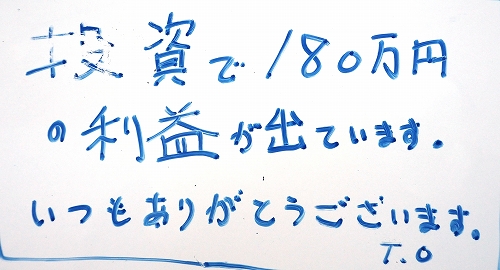 投資で180万円
の利益が出ています.
いつもありがとうございます.
T.O